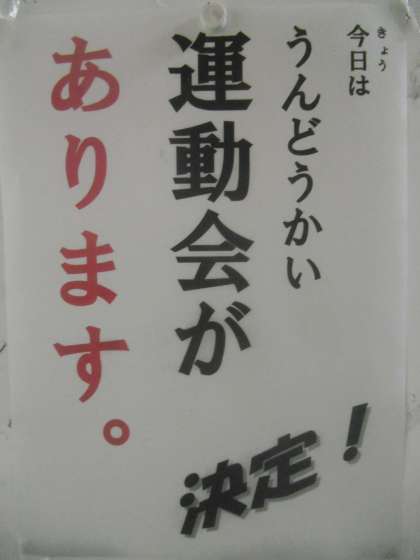 今日は
きょう
うんどうかい
運動会が
あります。
決定！